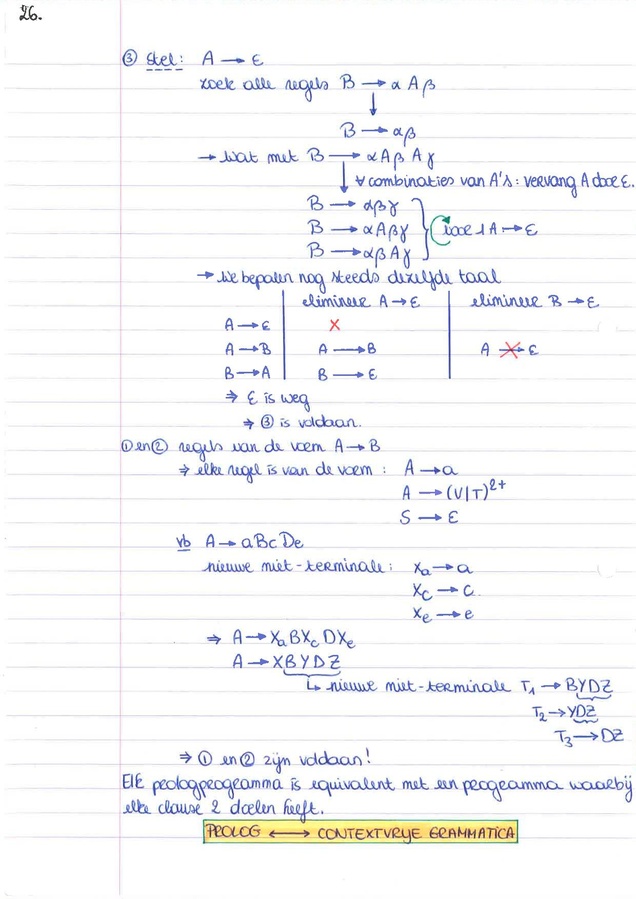 26.
③ Stel: A → ε
zoek alle regels B → α A β
↓
B → αβ
→ Wat met B → αAβ A γ
↓ ∀ combinaties van A's: vervang A door ε.
B → αβγ
B → αAβγ } door 1 A → ε
B → αβAγ
→ We bepalen nog steeds dezelfde taal
elimineer A → ε | elimineer B → ε
A → ε | × |
A → B | A → B | A → ε
B → A | B → ε |
⇒ ε is weg
⇒ ③ is voldaan.
① en ② regels van de vorm A → B
⇒ elke regel is van de vorm: A → a
A → (V|T)²⁺
S → ε
vb A → aBcDe
nieuwe niet-terminale: Xa → a
Xc → c
Xe → e
⇒ A → XaBXcDXe
A → XBYDZ
↳ nieuwe niet-terminale T₁ → BYDZ
T₂ → YDZ
T₃ → DZ
⇒ ① en ② zijn voldaan!
Elk prologprogramma is equivalent met een programma waarbij
elke clause 2 doelen heeft.
PROLOG ↔ CONTEXTVRIJE GRAMMATICA